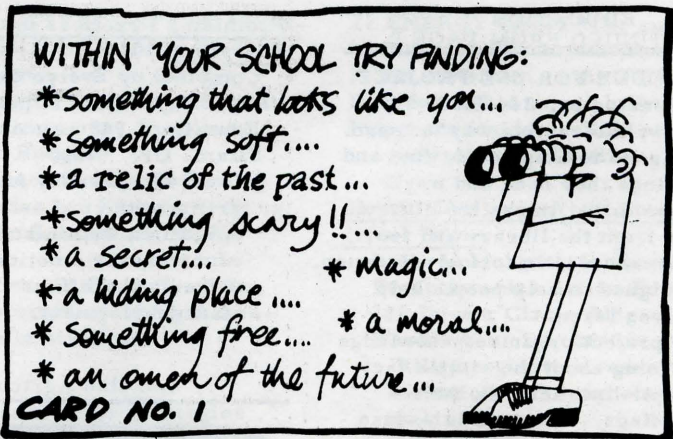 WITHIN YOUR SCHOOL TRY FINDING:
* Something that looks like you...
* Something soft....
* a relic of the past...
* Something scary!!...
* a secret...
* magic...
* a hiding place ....
* Something free...
* a moral....
* an omen of the future...
CARD NO. 1